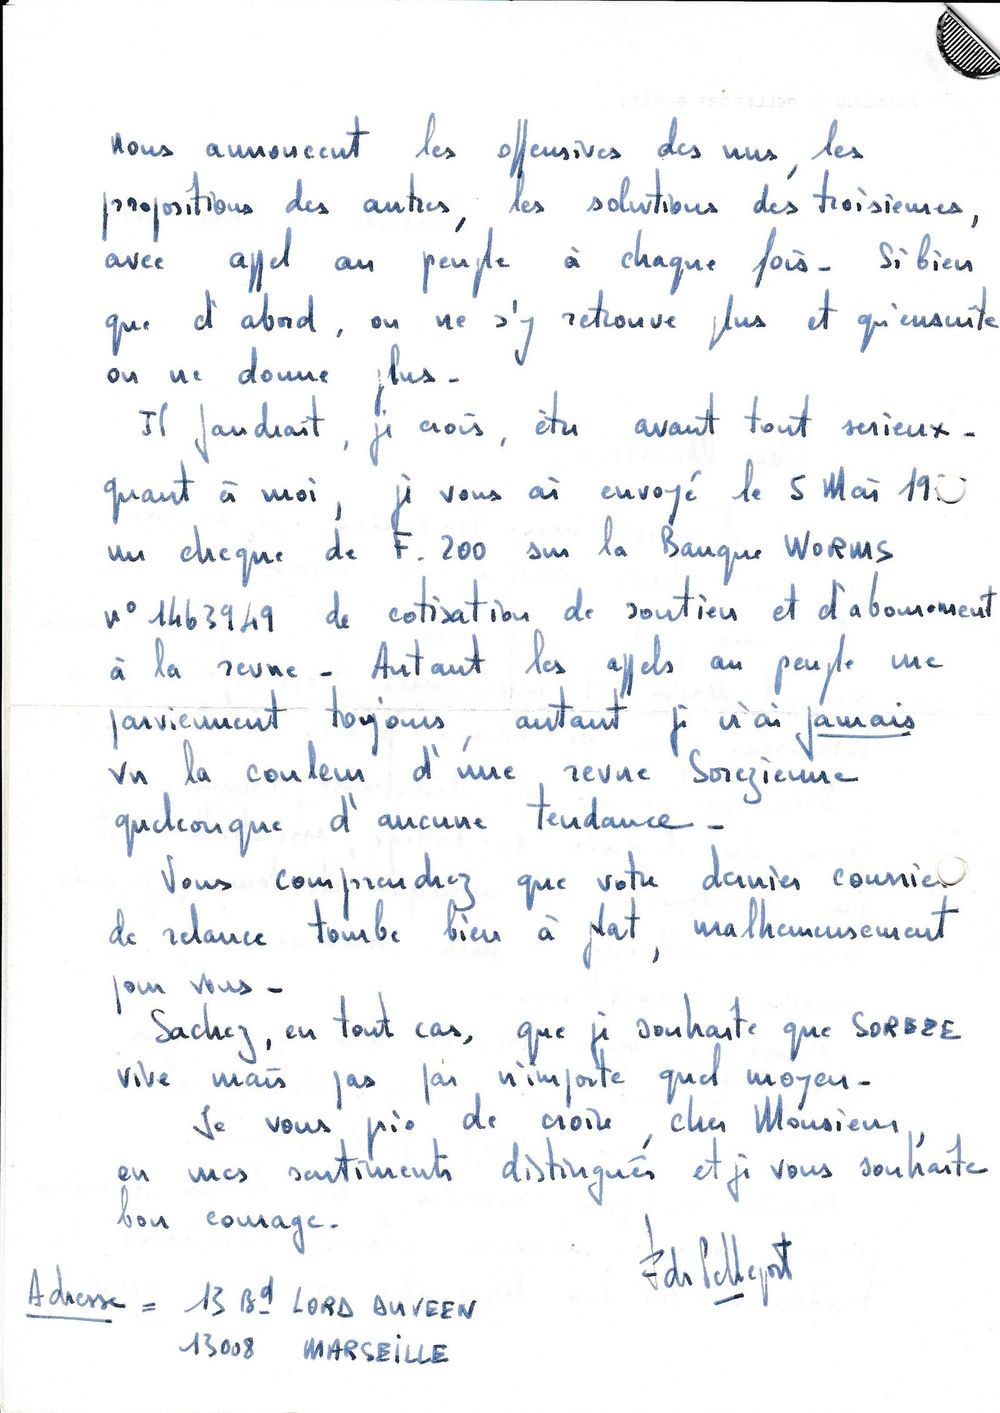 nous annoncent les offensives des uns, les
propositions des autres, les solutions des troisiemes,
avec appel au peuple à chaque fois - Si bien
que d'abord, on ne s'y retrouve plus et qu'ensuite
on ne donne plus -
Il faudrait, je crois, être avant tout serieux -
quant à moi, je vous ai envoyé le 5 Mai 19
un cheque de F. 200 sur la Banque WORMS
n° 1463949 de cotisation de soutien et d'abonnement
à la revue - Autant les appels au peuple me
parviennent toujours, autant je n'ai jamais
vu la couleur d'une revue Sorezienne
quelconque d'aucune tendance -
Vous comprendrez que votre dernier courrier
de relance tombe bien à plat, malheureusement
pour vous -
Sachez, en tout cas, que je souhaite que SOREZE
vive mais pas par n'importe quel moyen -
Je vous prie de croire, cher Monsieur,
en mes sentiments distingués et je vous souhaite
bon courage -
F de Pelleport
Adresse = 13 Bd LORD DUVEEN
13008 MARSEILLE